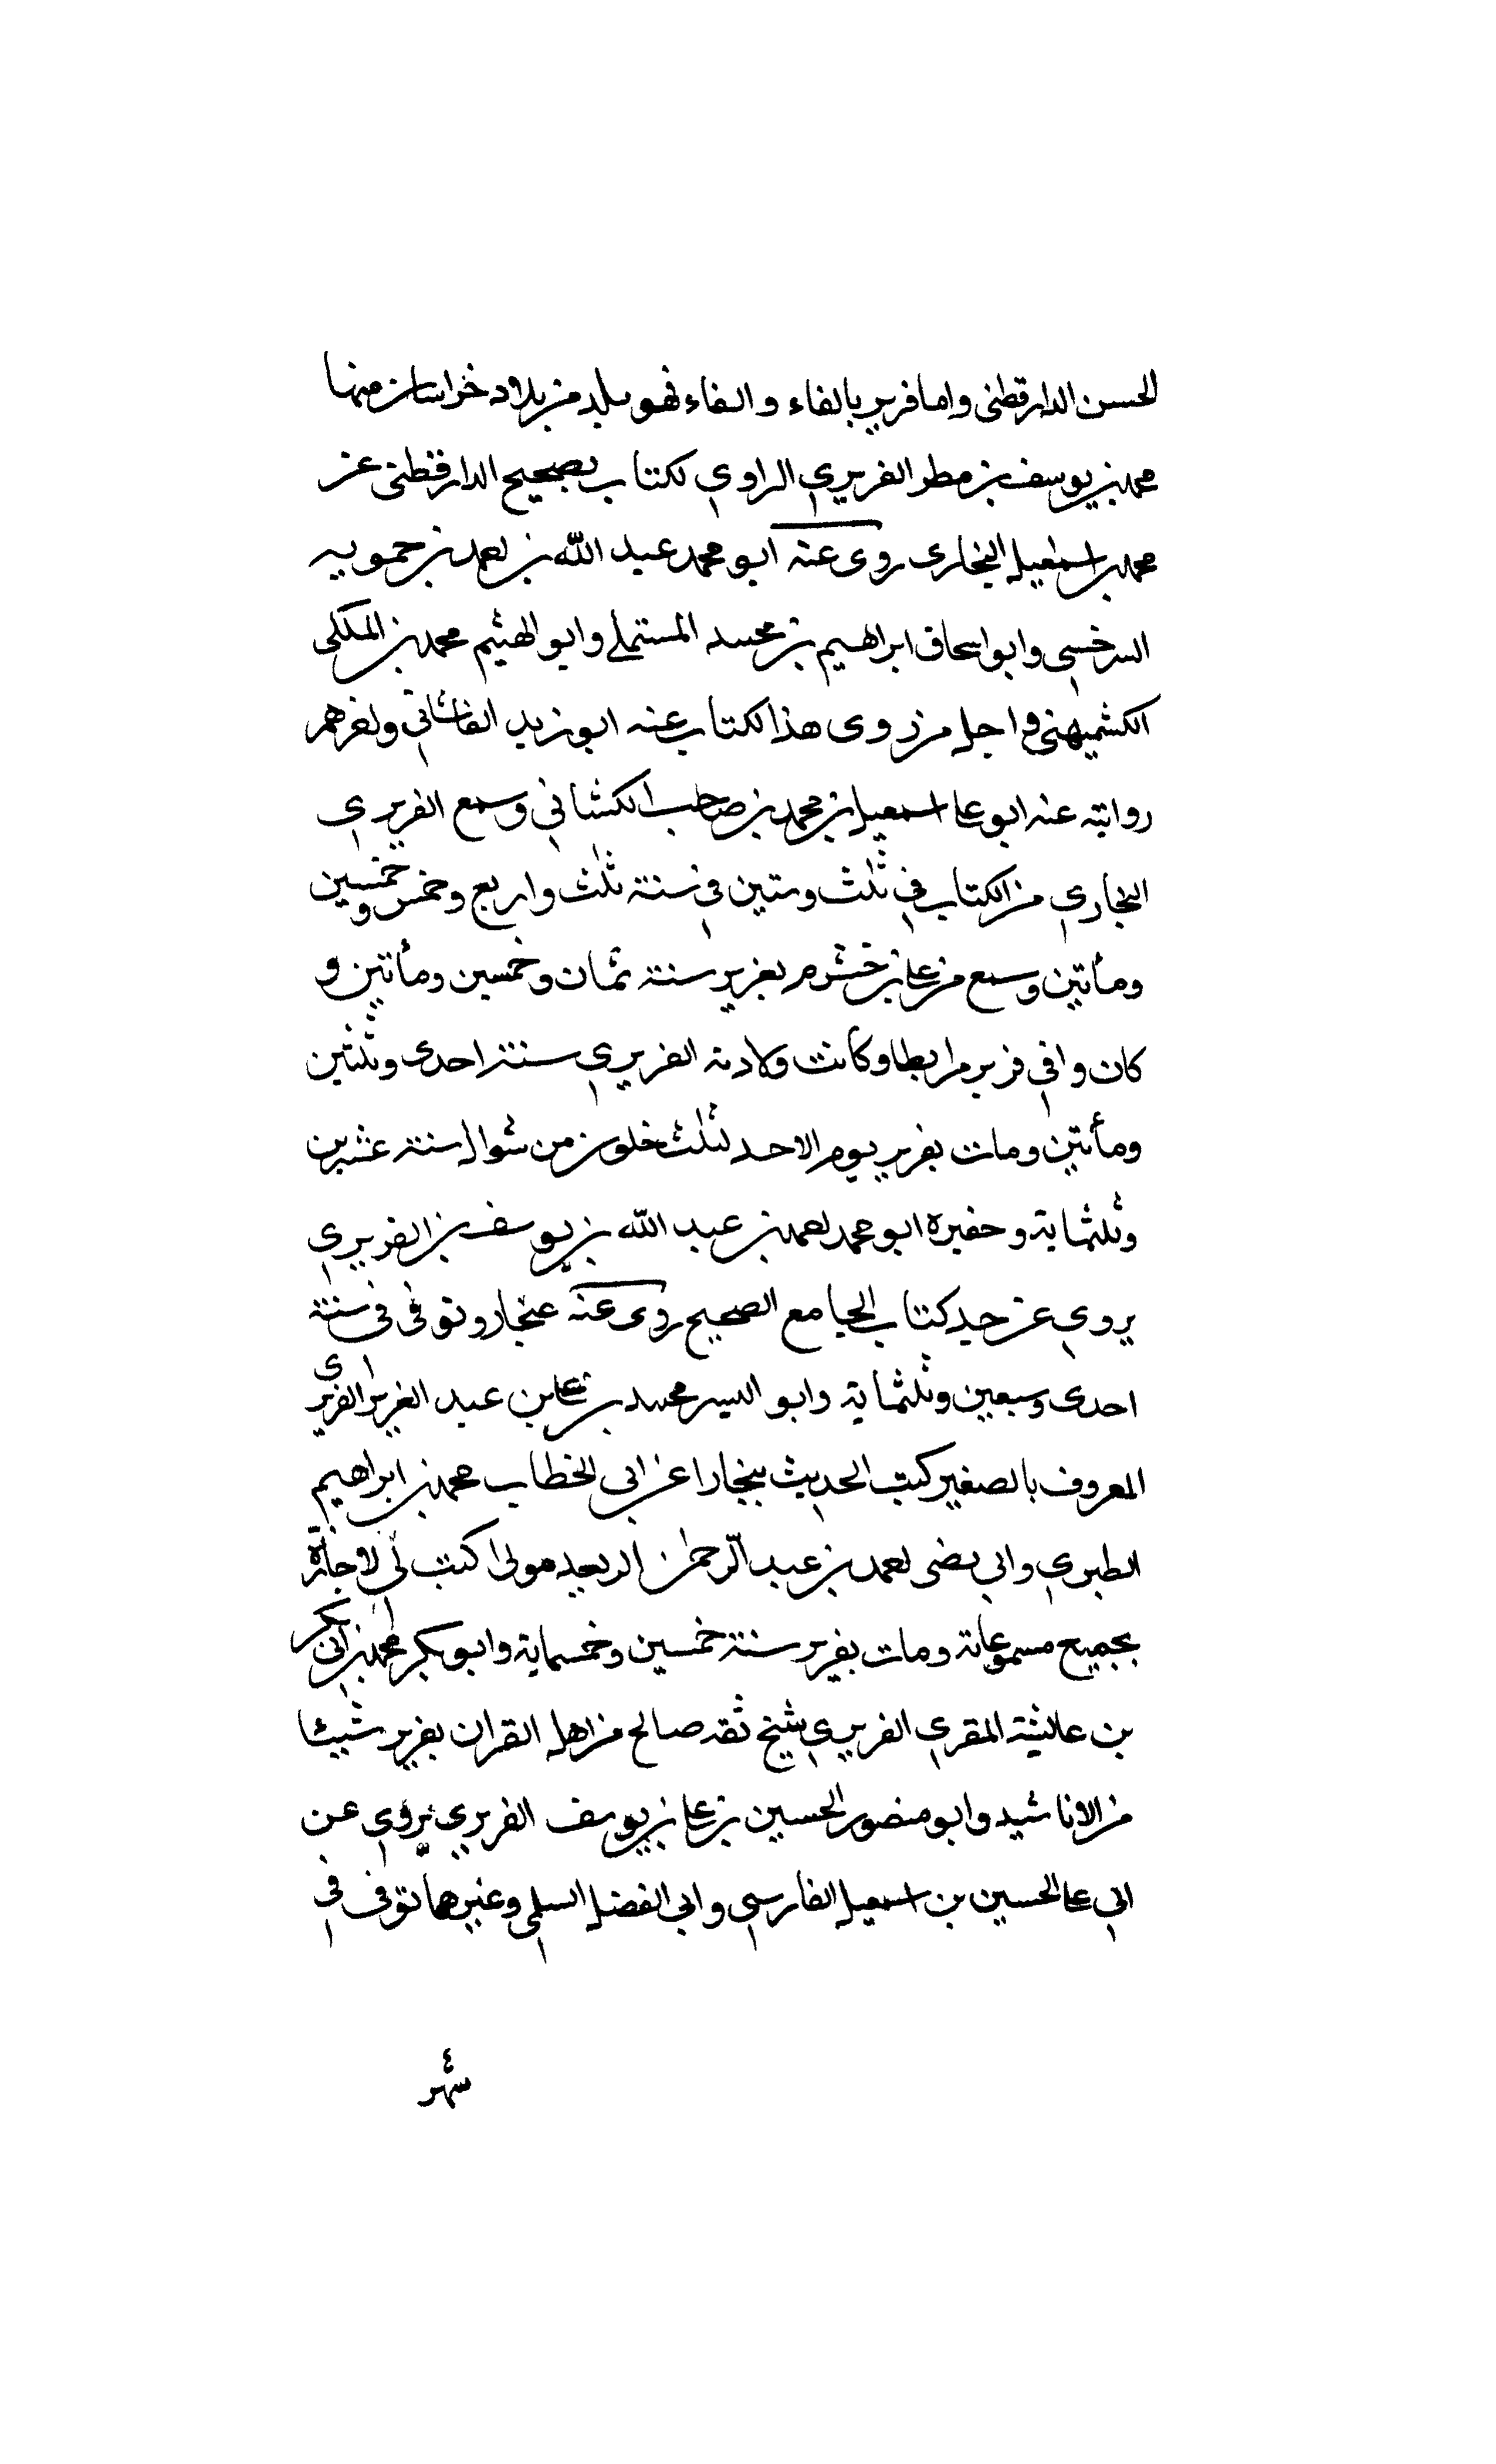 الحسن الدارقطنى واما فربر بالفاء والفاء فهو بلد من بلاد خراسان منها
محمد بن يوسف بن مطر الفربرى الراوى لكتاب بصحيح الدارقطنى عن
محمد بن اسمعيل البخارى روى عنه ابو محمد عبد الله بن احمد بن حمويه
السرخسى وابو اسحاق ابراهيم بن محمد المستملى وابو الهثيم محمد بن المكى
الكشميهنى واجل من روى هذا لكتاب عنه ابو زيد الفاشانى
روايته عنه ابو على اسمعيل بن محمد بن صاحب الكشانى وسمع الفربرى
البخارى من الكتاب فى ثلث وستين فى سنة ثلث واربع وخمس وخمسين
ومأتين وسمع من على بن خشرم بفربر سنة ثمان وخمسين ومأتين و
كان وافى فربر مرابطا وكانت ولادته الفربرى سنة احدى وثلثين
ومأتين ومات بفربر يوم الاحد لثلث خلون من شوال سنة عشرين
وثلثماية وحفيره ابو محمد احمد بن عبد الله بن يوسف بن الفربرى
يروى عن جد كتاب الجامع الصحيح روى عنه غنجار وتوفى فى سنة
احدى وسبعين وثلثماية وابو اليسر محمد بن على بن عبد العزيز الفربرى
المعروف بالصغير كتب الحديث ببخارا عن ابى الخطاب محمد بن ابراهيم
الطبرى وابى احمد بن عبد الرحمن كتب لى الاجازة
بجميع مسموعاته ومات بفربر سنة خمسين وخمسماية وابو بكر محمد بن ابى بكر
بن المقرى الفربرى شيخ ثقه صالح من اهل القران بفربر شيئا
من الاناشيد وابو منصور الحسين بن على بن يوسف الفربرى يروى عن
ابى على الحسين بن اسمعيل الفارسى وابى الفضل السلمى وغيرهما توفى فى
شهر